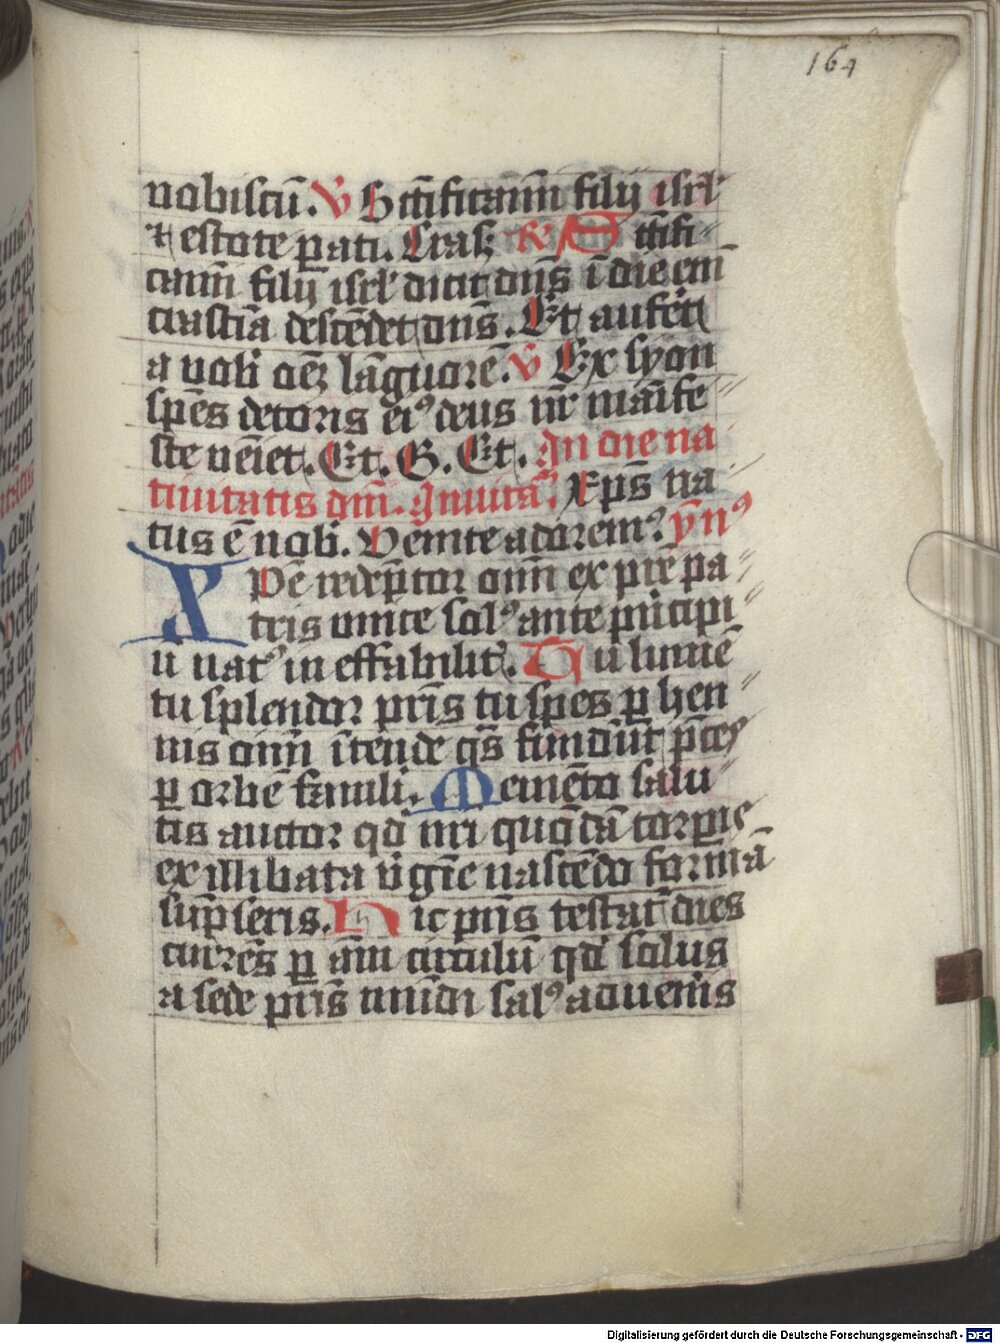 164
nobiscū. V Sctīficamīni filij isrl'
et estote pati. Cras R Sctīfi
camīni filij isrl' dicit dn̄s ī die em
crastīa descēdet dn̄s. Et auferet
a vob' oēꝫ lāguorē. V Ex syon
spēs decoris ei⁹ deus nr̄ māife
ste vēiet. Et. G. Et. In die na
tiuitatis dn̄i. Inuita. xp̄s na
tus ē nob'. Venite adorem⁹ yn⁹
Xp̄e redēptor oīm ex p̄re pa
tris vnice sol⁹ ante prīcipi
ū nat⁹ in effabilit'. Tu lumē
tu splendor pr̄is tu spes ꝑhen
nis oīm ītende qs̄ fundūt p̄ces
ꝑ orbē famuli. Memēto salu
tis auctor qd̄ nr̄i quōdā corꝑis
ex illibata v'gīe nascēdo formā
sūpseris. Hic p̄ns testat' dies
currēs ꝑ āni circulū qd̄ solus
a sede pr̄is mūdi sal⁹ adueneris
Digitalisierung gefördert durch die Deutsche Forschungsgemeinschaft - DFG